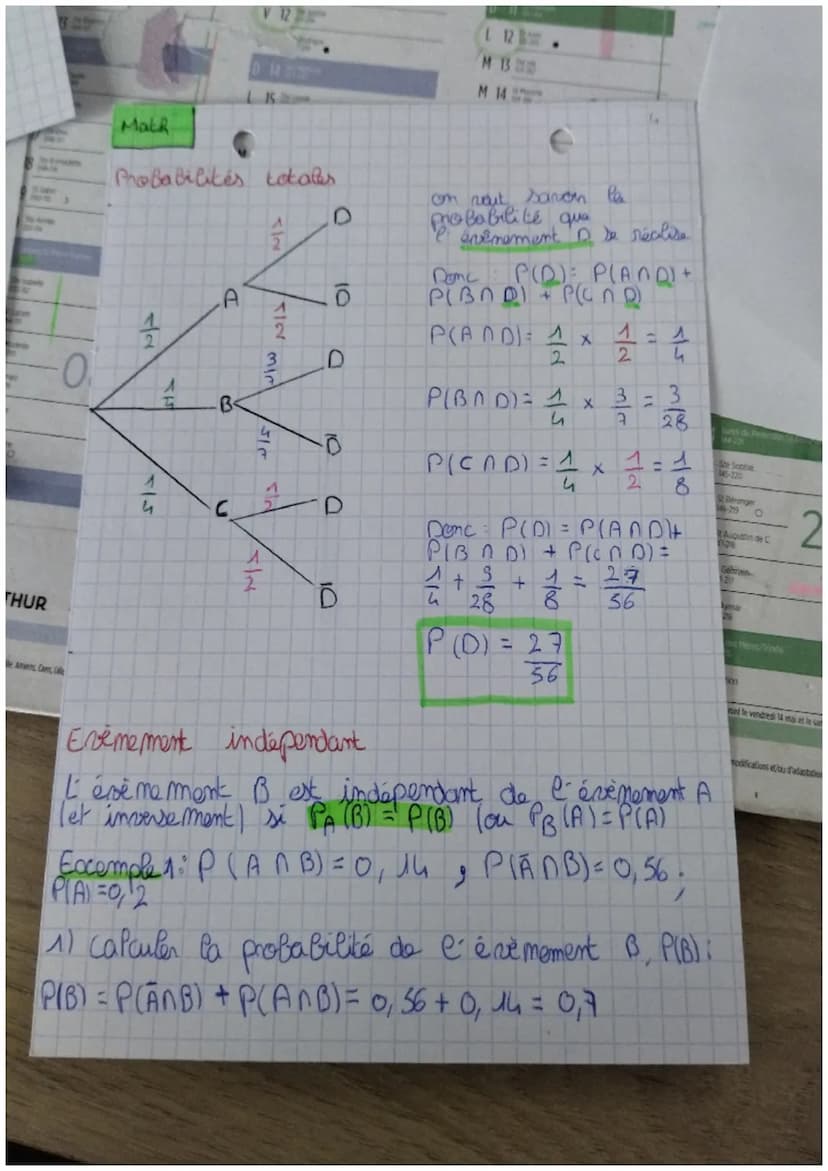 V 12
L 12
M 13
M 14
L 15
Math
Probabilités totales
1/2
D
A
1/2
D̅
1/2
3/7
D
1/4
B
4/7
D̅
1/4
C
1/2
D
1/2
D̅
on veut savoir la
probabilité que
l'évènement D se réalise
Donc : P(D) = P(A∩D) +
P(B∩D) + P(C∩D)
P(A∩D) = 1/2 × 1/2 = 1/4
P(B∩D) = 1/4 × 3/7 = 3/28
P(C∩D) = 1/4 × 1/2 = 1/8
Donc : P(D) = P(A∩D)+
P(B∩D) + P(C∩D) =
1/4 + 3/28 + 1/8 = 27/56
P(D) = 27/56
THUR
2
Evènement indépendant
L'évènement B est indépendant de l'évènement A
(et inversement) si P_A(B) = P(B) (ou P_B(A) = P(A)
Exemple 1: P(A∩B) = 0,14 , P(A̅∩B) = 0,56 ;
P(A) = 0,2
1) calculer la probabilité de l'évènement B, P(B) :
P(B) = P(A̅∩B) + P(A∩B) = 0,56 + 0,14 = 0,7